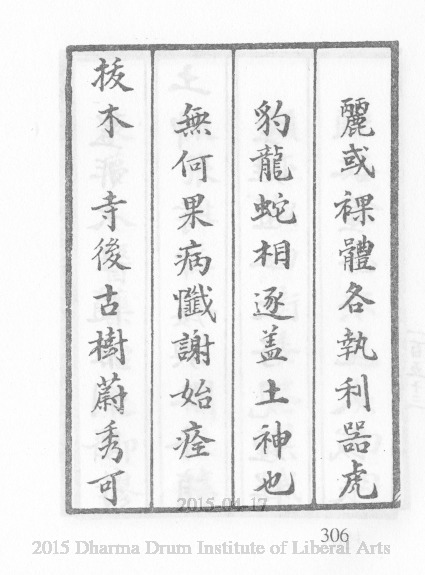 麗或裸體各執利器虎
豹龍蛇相逐盖土神也
無何果病懺謝始痊
拔木 寺後古樹蔚秀可
2015-04-17
306
2015 Dharma Drum Institute of Liberal Arts